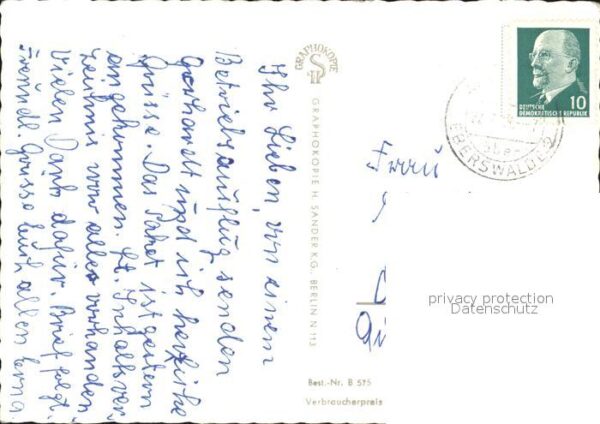 Ihr Lieben, von einem
Betriebsausflug senden
Gerhardt und ich herzliche
Grüsse. Das Paket ist gestern
angekommen. Lt. Inhaltsver
zeichnis war alles vorhanden
Vielen Dank dafür. Brief folgt.
Freundl. Grüsse Euch allen Erna.
GRAPHOKOPIE
GRAPHOKOPIE H. SANDER K.G., BERLIN N 113
DEUTSCHE
DEMOKRATISCHE REPUBLIK
10
EBERSWALDE 2
Frau
privacy protection
Datenschutz
Best.-Nr. B 575
Verbraucherpreis